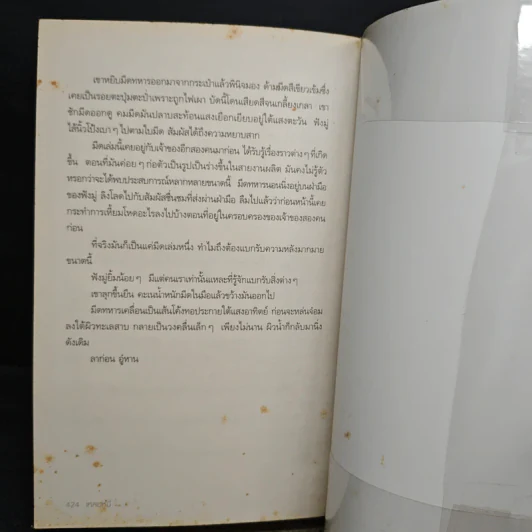 เขาหยิบมีดทหารออกมาจากกระเป๋าแล้วพินิจมอง ด้ามมีดสีเขียวเข้มซึ่ง
เคยเป็นรอยตะปุ่มตะป่ำเพราะถูกไฟเผา บัดนี้โดนเสียดสีจนเกลี้ยงเกลา เขา
ชักมีดออกดู คมมีดมันปลาบสะท้อนแสงเยือกเย็นอยู่ใต้แสงตะวัน ฟังมู่
ไล้นิ้วโป้งเบา ๆ ไปตามใบมีด สัมผัสได้ถึงความหยาบสาก
มีดเล่มนี้เคยอยู่กับเจ้าของอีกสองคนมาก่อน ได้รับรู้เรื่องราวต่าง ๆ ที่เกิด
ขึ้น ตอนที่มันค่อย ๆ ก่อตัวเป็นรูปเป็นร่างขึ้นในสายงานผลิต มันคงไม่รู้ตัว
หรอกว่าจะได้พบประสบการณ์หลากหลายขนาดนี้ มีดทหารนอนนิ่งอยู่บนฝ่ามือ
ของฟังมู่ ลิงโลดไปกับสัมผัสชื่นชมที่ส่งผ่านฝ่ามือ ลืมไปแล้วว่าก่อนหน้านี้เคย
กระทำการเหี้ยมโหดอะไรลงไปบ้างตอนที่อยู่ในครอบครองของเจ้าของสองคน
ก่อน
ที่จริงมันก็เป็นแค่มีดเล่มหนึ่ง ทำไมถึงต้องแบกรับความหลังมากมาย
ขนาดนี้
ฟังมู่ยิ้มน้อย ๆ มีแต่คนเราเท่านั้นแหละที่รู้จักแบกรับสิ่งต่าง ๆ
เขาลุกขึ้นยืน คะเนน้ำหนักมีดในมือแล้วขว้างมันออกไป
มีดทหารเคลื่อนเป็นเส้นโค้งทอประกายใต้แสงอาทิตย์ ก่อนจะหล่นจ๋อม
ลงใต้ผิวทะเลสาบ กลายเป็นวงคลื่นเล็ก ๆ เพียงไม่นาน ผิวน้ำก็กลับมานิ่ง
ดังเดิม
ลาก่อน อู๋หาน
424